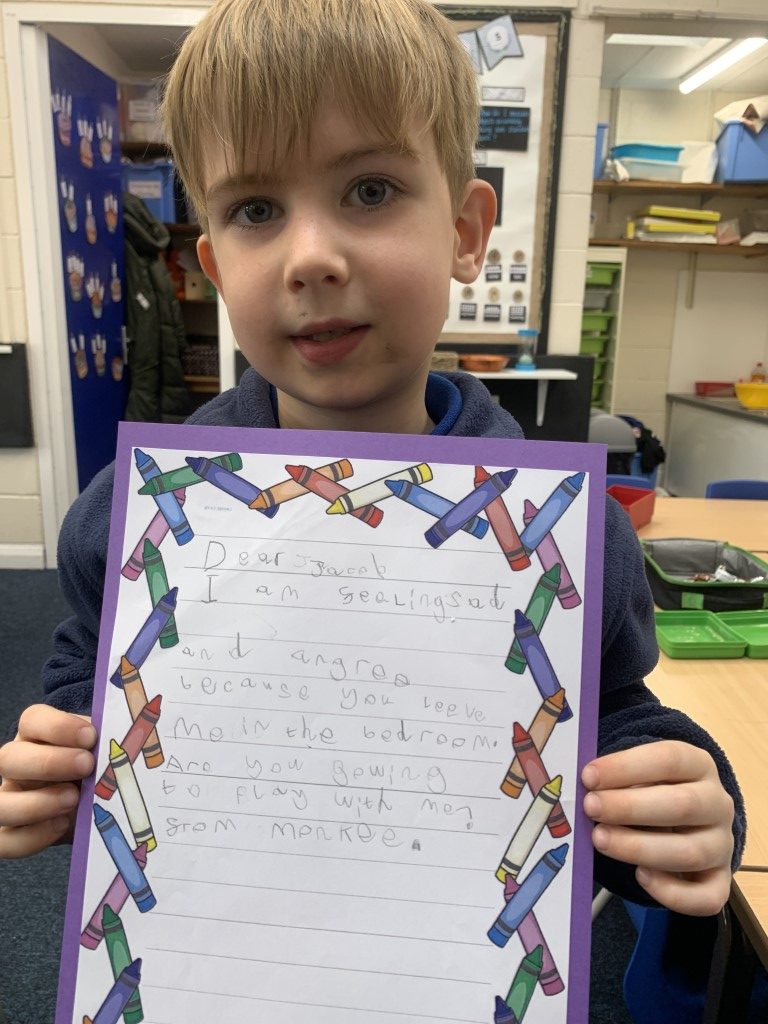 Dear Jacob
I am fealing sad
and angree
because you leeve
me in the bedroom.
Are you gowing
to play with me?
from monkee.